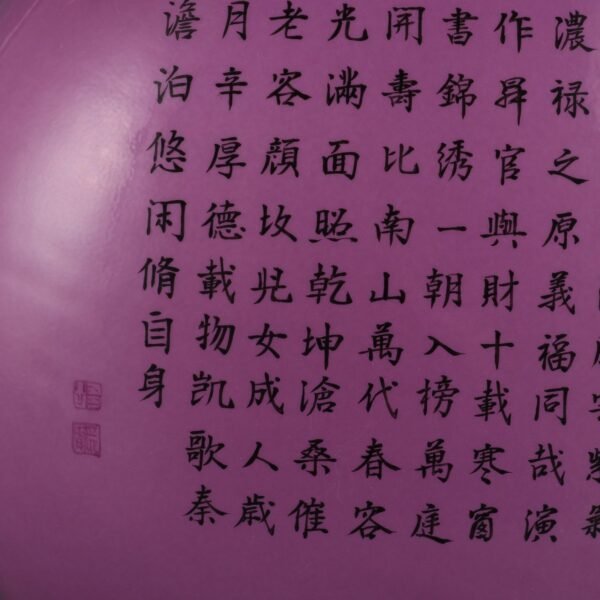 濃祿之原義福同哉演
作昇官與財十載寒窗
書錦绣一朝入榜萬庭
開壽比南山萬代春容
光滿面照乾坤滄桑催
老容顏女成人歲
月辛厚德載物凯歌秦
澹泊悠闲脩自身